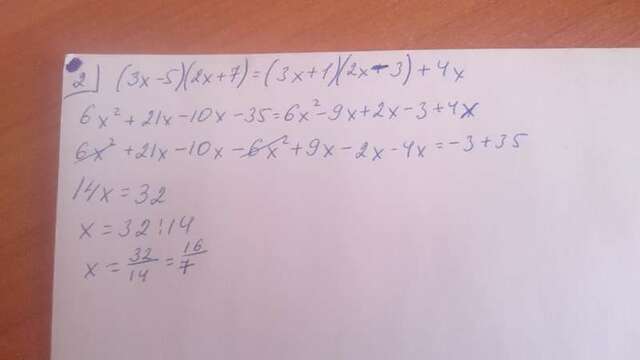 2) (3x-5)(2x+7)=(3x+1)(2x-3)+4x
6x²+21x-10x-35=6x²-9x+2x-3+4x
6x²+21x-10x-6x²+9x-2x-4x=-3+35
14x=32
x=32:14
x=32/14=16/7